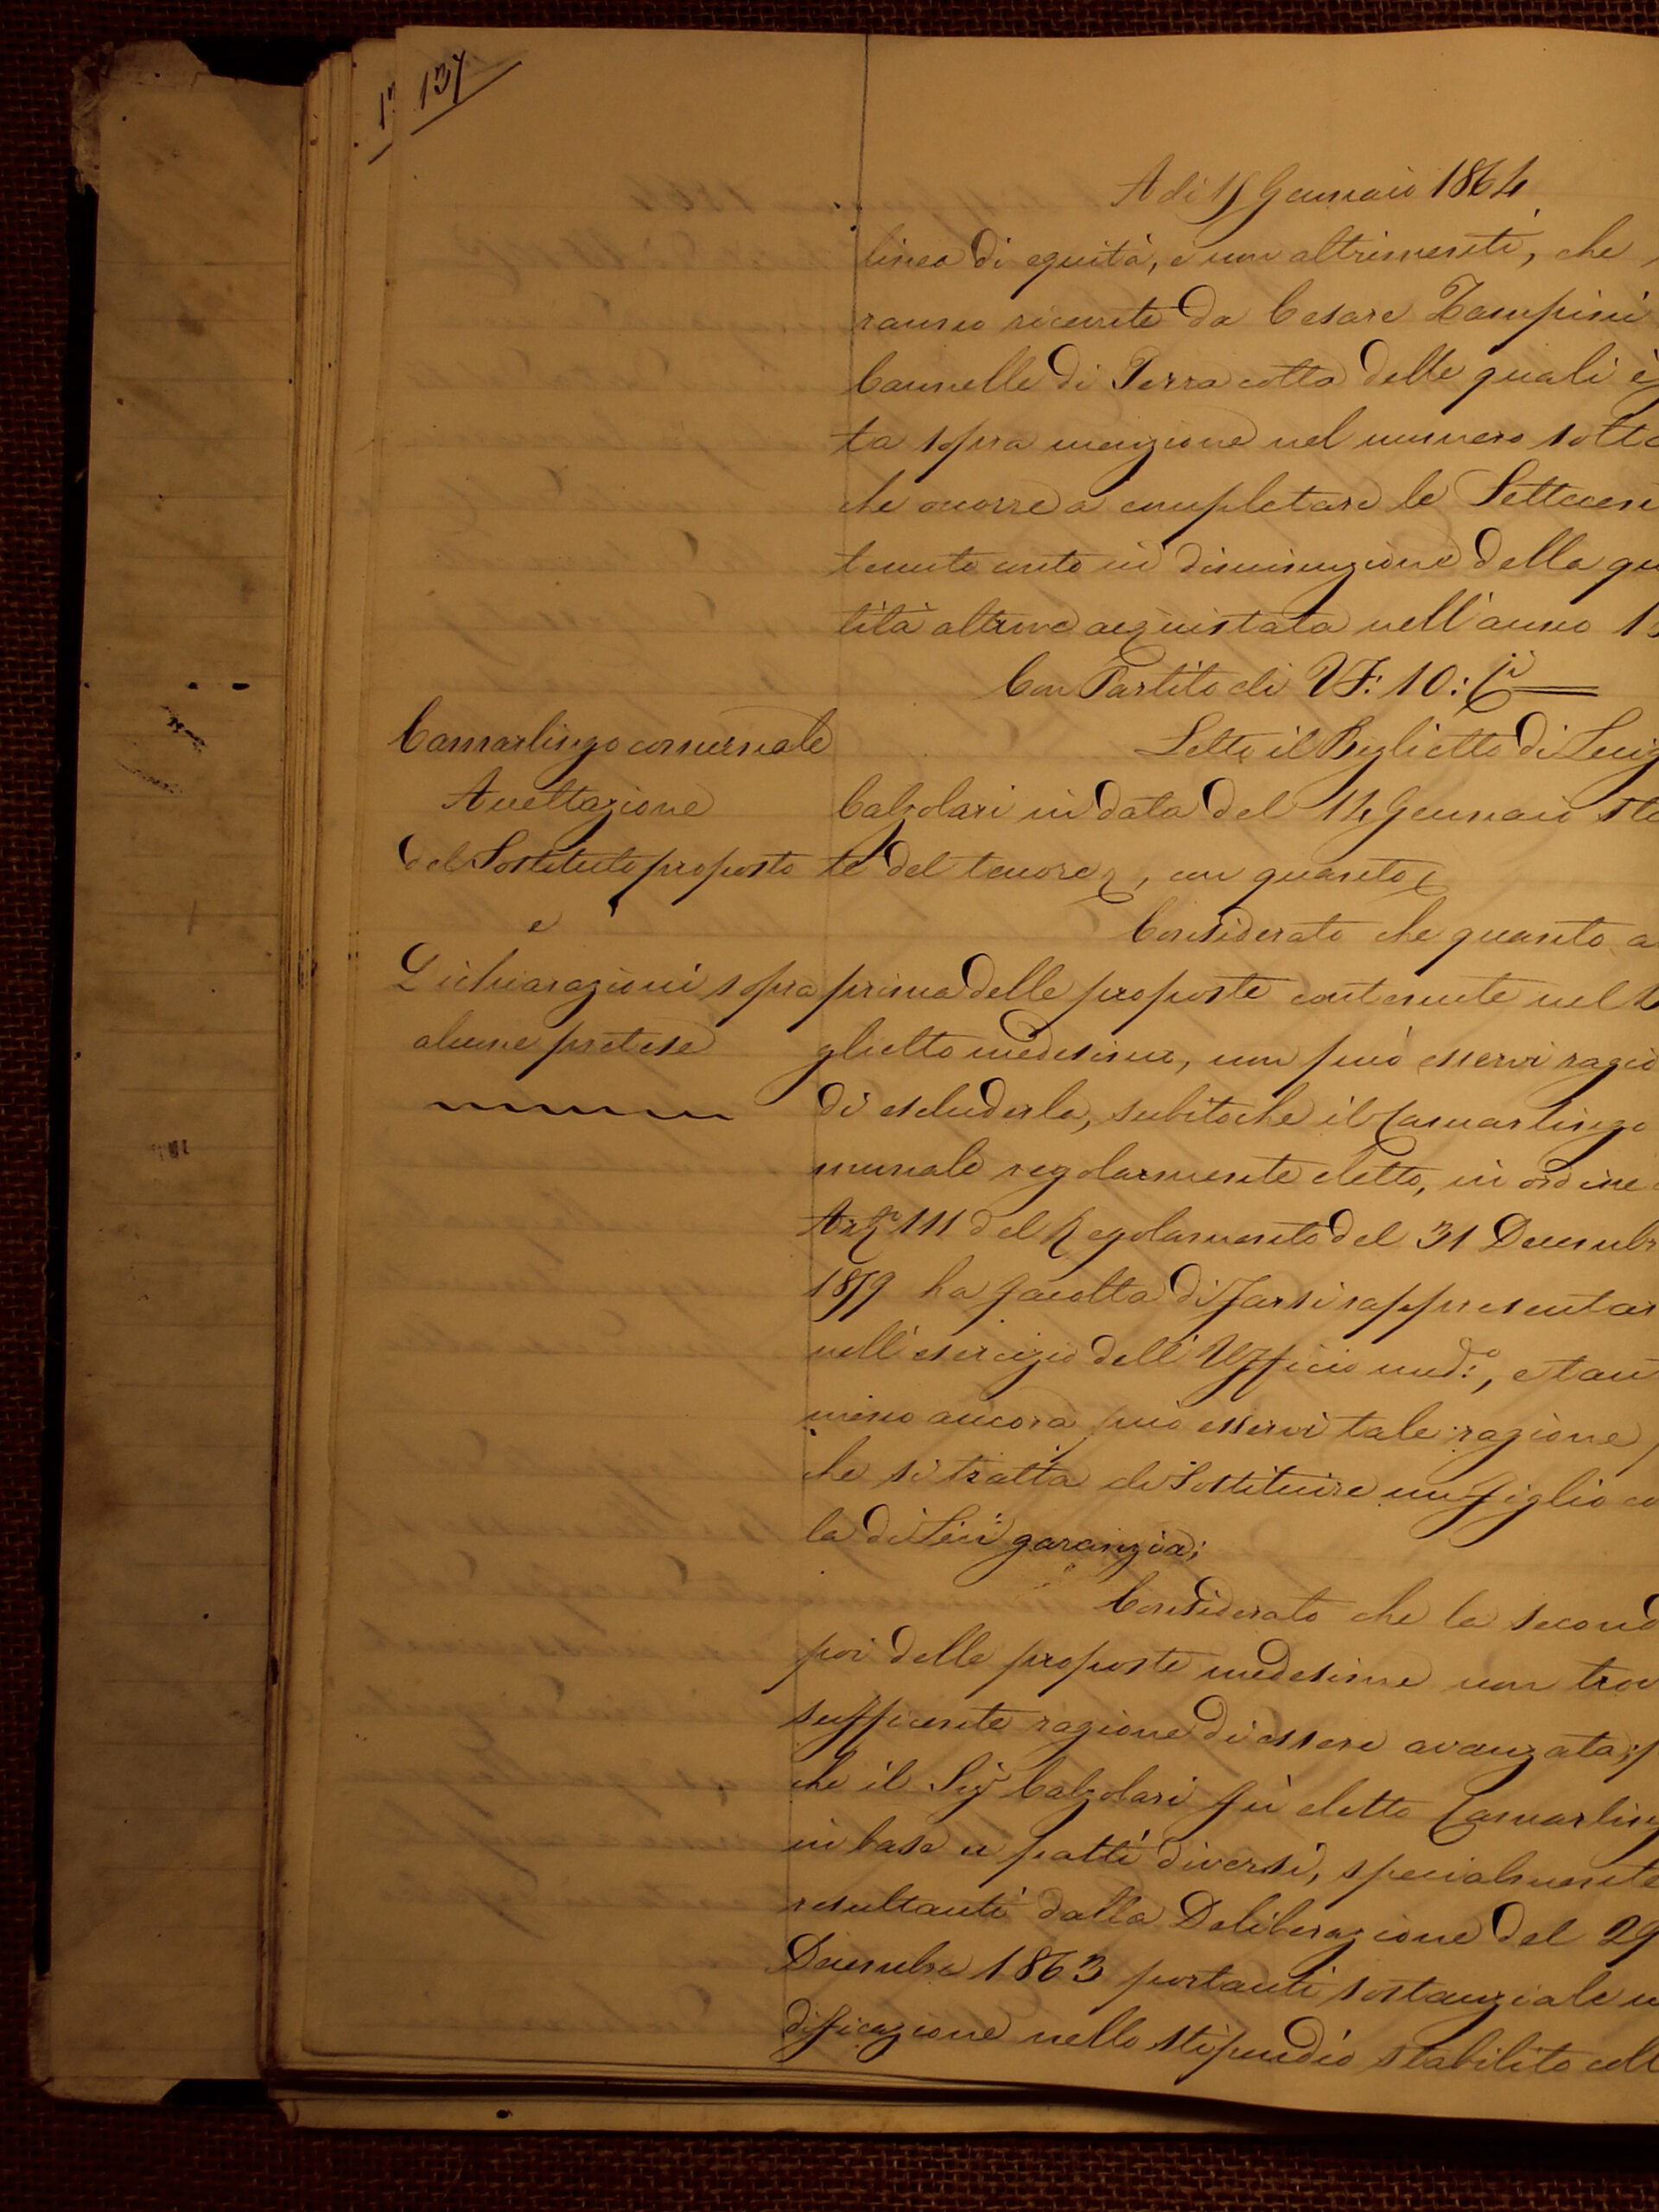 137
A di 15 Gennaio 1864
linea di equità, e non altrimenti, che
ranno ricevute da Cesare Zampini
Cannelle di Terra cotta delle quali è
ta sopra menzione nel numero sotto
che occorre a completare le Settecen
tenuto conto in diminuzione della qu
tità altrove acquistata nell'anno 18
Con Partito di VF: 10:
Camarlingo comunale
Accettazione
del Sostituto proposto
e
Dichiarazioni sopra
alcune pretese
Letto il Biglietto di Luig
Calzolari in data del 14 Gennaio sta
te del tenore, con quanto
Considerato che quanto a
prima delle proposte contenute nel B
glietto medesimo, non può esservi ragio
di escluderla, subitochè il Camarlingo
munale regolarmente eletto, in ordine
Art 111 del Regolamento del 31 Decembr
1859 ha facoltà di farsi rappresentar
nell'esercizio dell'Ufficio med:o, e tan
meno ancora può esservi tale ragione,
che si tratta di Sostituire un figlio co
la di Lui garanzia;
Considerato che la second
poi delle proposte medesime non trov
sufficiente ragione di essere avanzata;
che il Sigr Calzolari fù eletto Camarling
in base a patti diversi, specialmente
resultanti dalla Deliberazione del 29
Decembre 1863 portanti sostanziale m
dificazione nello stipendio stabilito coll